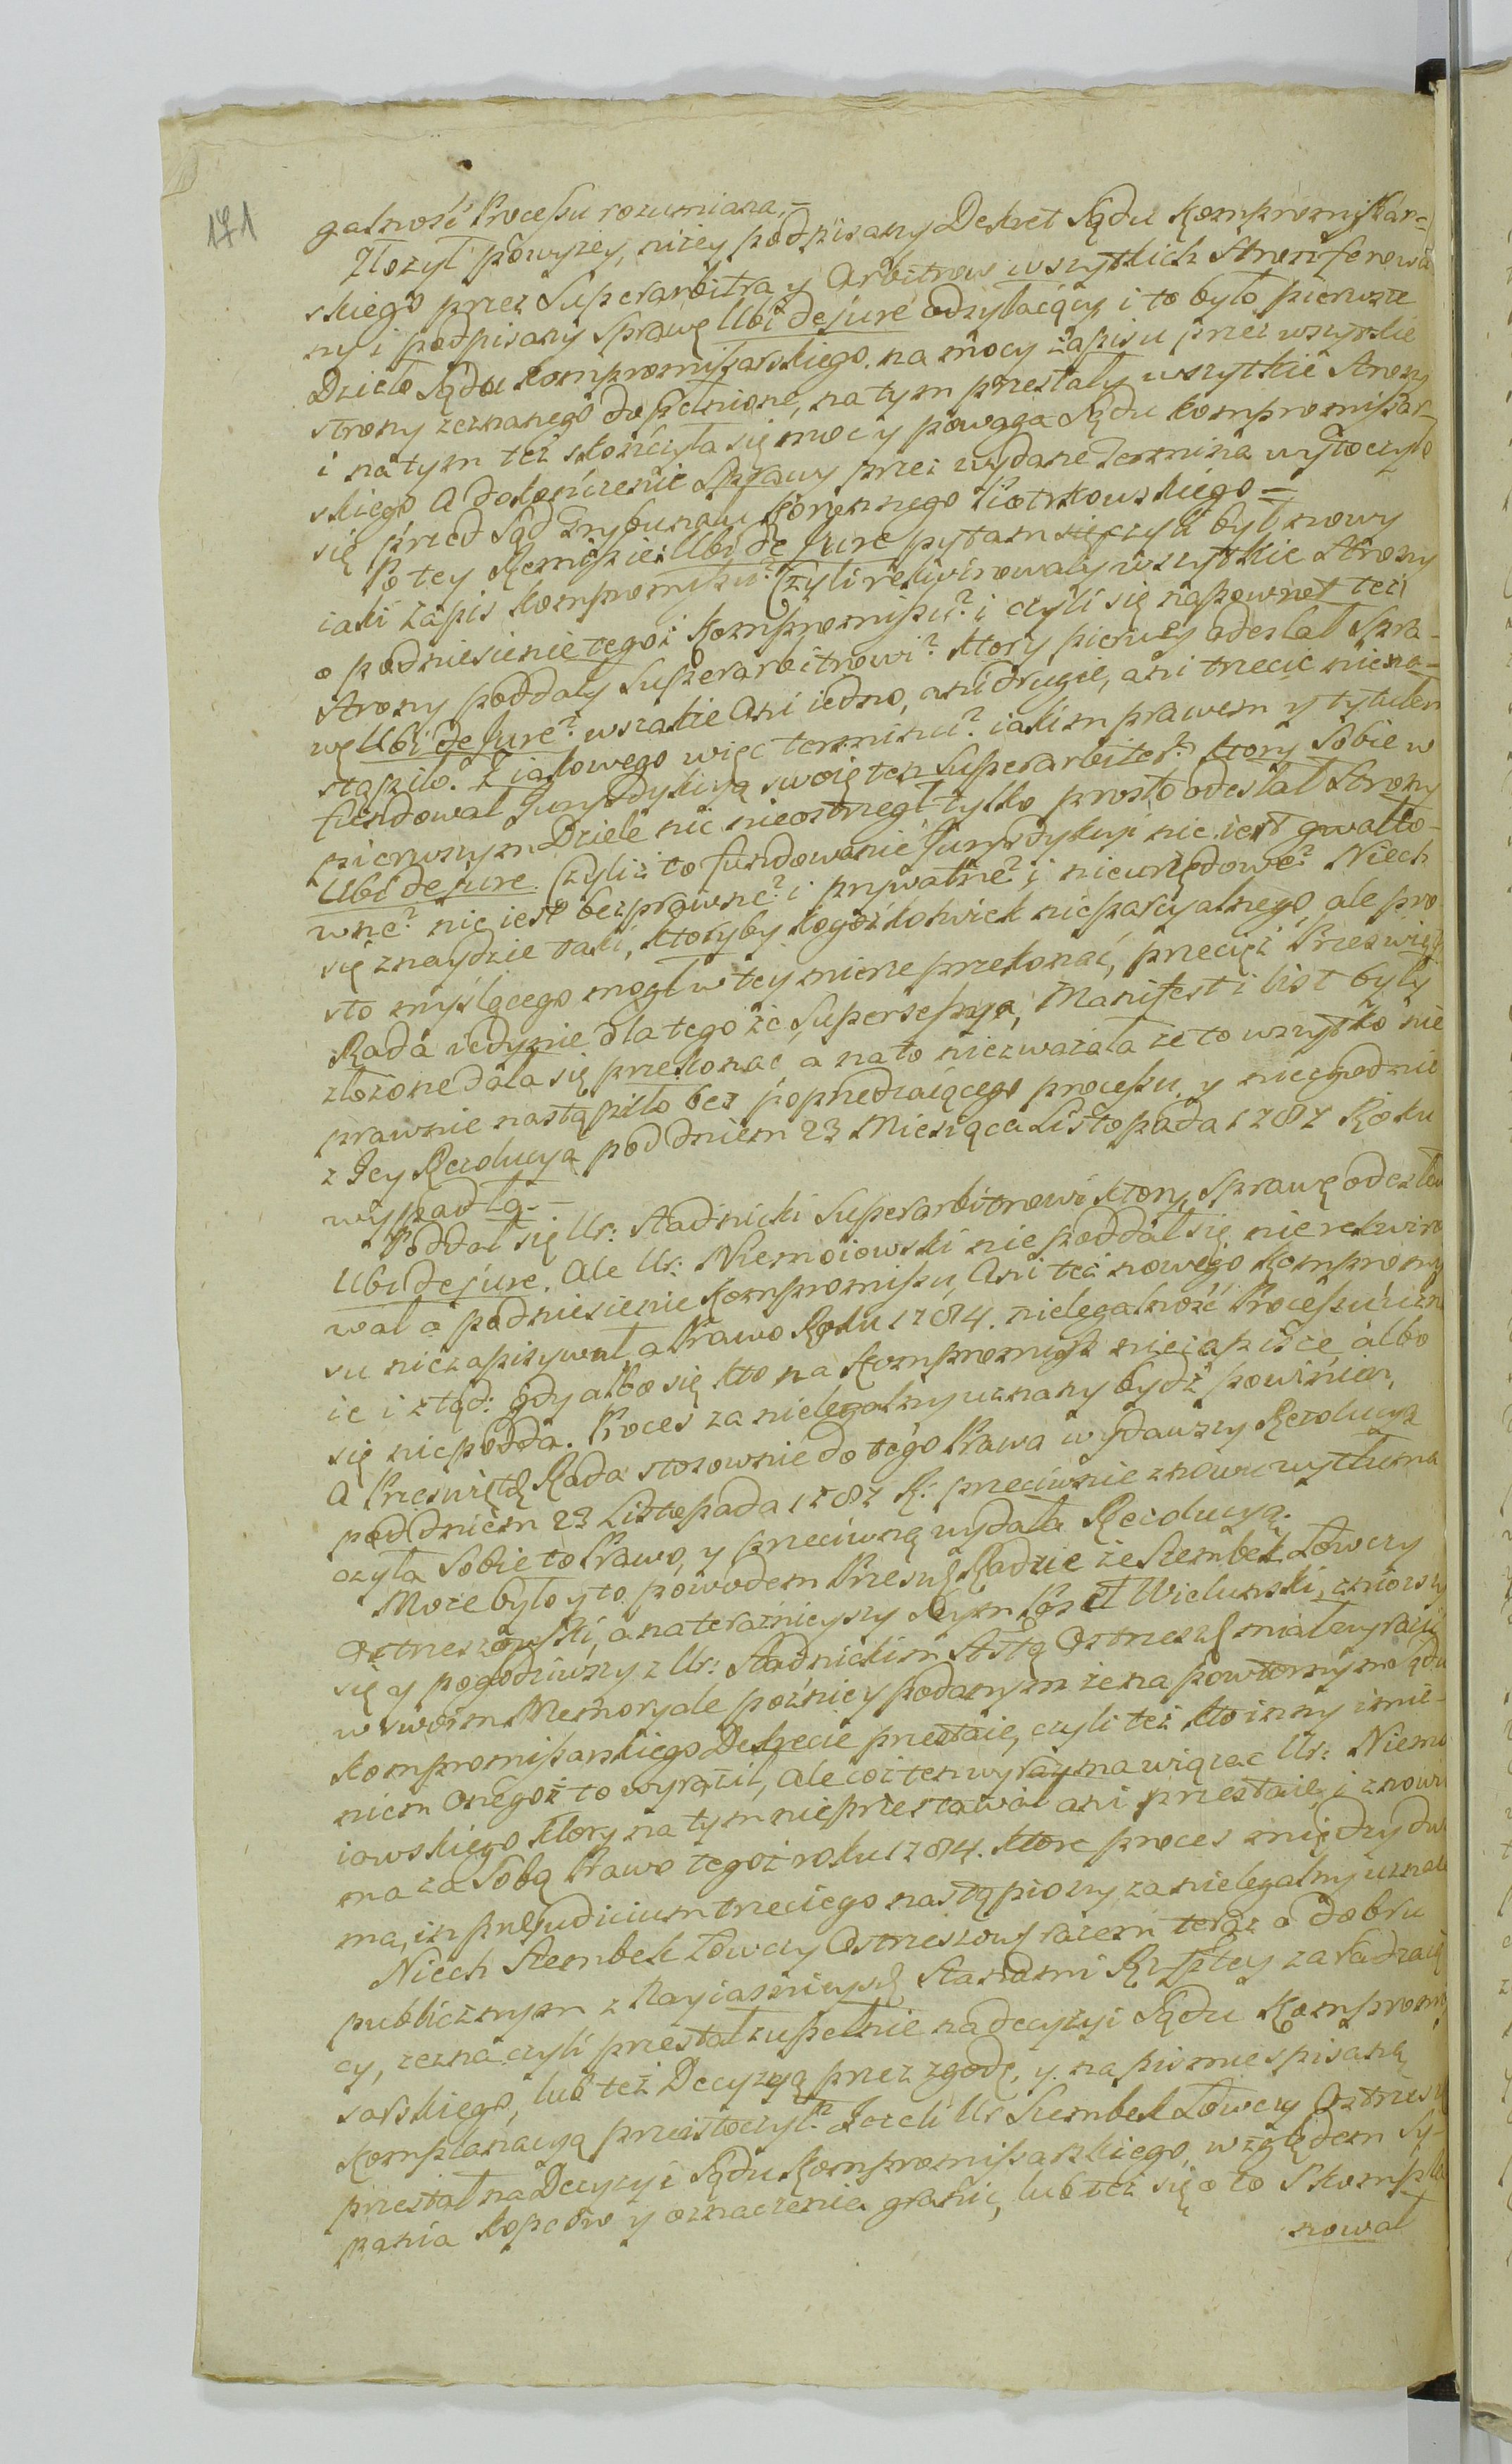 171
galność Procesu rozumiana.–
Złożył powyżey, niżey podpisany Dekret Sądu Kompromissar=
skiego przez Superarbitra y Arbitrow wszytkich Stron ferowa
ny i podpisany Sprawę Ubi de jure odzyłaiący i to było pierwsze
Dzieło Sądu kompromissarskiego na mocy zapisu przez wszyskie
strony zeznanego dopełnione, na tym przestały wszytkie Strony
i na tym też skończyła się moc y powaga Sądu kompromissar-
skiego a dokończenie Sprawy przez wydane Termina wytoczyło
się przed Sąd Trybunału Koronnego Piotrkowskiego =
Po tey Remissie Ubi de Jure pytam się czyli był nowy
iaki zapis kompromissu? czyli rekwirowały wszytkie Strony
o podniesienie tegoż Kompromissu? i czyli się napowrot też
Strony poddały Superarbitrowi? ktory pierwszy odesłał Spra-
wę Ubi de Jure? wszakże Ani iedno, ani drugie, ani trzecie niena-
stąpiło. Z iakowego więc terminu? iakim prawem y tytułem
fundował Jurysdykcyą swoię ten Superarbiter? ktory Sobie w
pierwszym Dziele nic nieostrzegł tylko prosto odesłał Strony
Ubi de jure. Czyliż to fundowanie Jurysdykcyi nie iest gwałto-
wne? nie iest bezprawne? i prywatne? i nieurzędowe? Niech
się znaydzie taki, ktoryby kogożkolwiek nieparcyalnego, ale pro
sto myślącego mogł w tey mierze przekonać, przecież Prześwięt
Rada iedynie dla tego że Supersessya, Manifest i list były
złożone dała się przekonać, a na to niezważała że to wszytko nie
prawnie nastąpiło bez poprzedzaiącego processu, y niezgodnie
z Jey Rezolucya pod dniem 23 Miesiąca Listopada 1787 Roku
wypadłą.–
Poddał się Ur: Stadnicki Superarbitrowi ktory Sprawę odesłał
Ubi de jure. Ale Ur: Niemoiowski nie poddał się, nie rekwiro
wał o podniesienie Kompromissu, Ani też nowego Kompromis
su niezapisywał, a Prawo Roku 1784. nielegalność Processu uzna
ie i ztąd: gdy albo się kto na Kompromiss niezapisze, albo
się niepodda. Proces za nielegalny uznany bydź powinien,
A Prześwięt: Rada stosownie do tego Prawa wydawszy Rezolucyą
pod dniem 23 Listopada 1787 R: przeciwnie znowu wytłuma
czyła Sobie to Prawo, y przeciwną wydała Rezolucyą.
Może było y to powodem Przesw: Radzie że Szembek Łowczy
Ostrzeszowski, a na teraźnieyszy Seym Poseł Wieluński, zniosszy
się y pogodziwszy z Ur: Stadnickim Sttą Ostrzesz: miał wyrazić
w swoim Memoryale poźniey podanym że na powtornym Sądu
kompromissarskiego Dekrecie przestaie, czyli też kto inny imie-
niem Onegoż to wyraził, ale coż ten wyraz ma wiązac Ur: Niemo
iowskiego ktory na tym nieprzestawał ani przestaie, i znowu
ma za Sobą Prawo tegoż roku 1784. ktore proces między dwo
ma, in præjudicium trzeciego nastąpiony za nielegalny uznaie
Niech Szembek Łowczy Ostrzeszows: razem teraz o dobru
publicznym z Nayiaśnieysz: Stanami Rzpltey zaradzaią
cy, zezna czyli przestał zupełnie na decyzyi Sądu Kompromis
sarskiego, lub też Decyzyą przez zgodę, y na pismie spisaną
Komplanacyą przeistoczył? Jeżeli Ur Szembek Łowczy Ostrzesz
przestał na Decyzyi Sądu Kompromissarskiego, względem Sy-
pania kopcow y oznaczenia granic, lub też się o to Skompla
nował